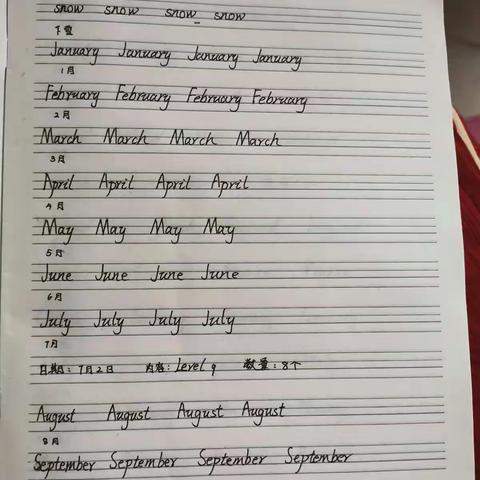 snow snow snow snow
下雪
January January January January
1月
February February February February
2月
March March March March
3月
April April April April
4月
May May May May
5月
June June June June
6月
July July July July
7月
日期：7月2日 内容：Level 9 数量：8个
August August August August
8月
September September September September